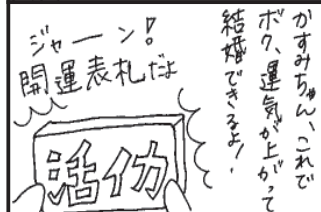 かすみちゃん、これで
ボク、運気が上がって
結婚できるよ!
ジャーン!
開運表札だよ
活イカ